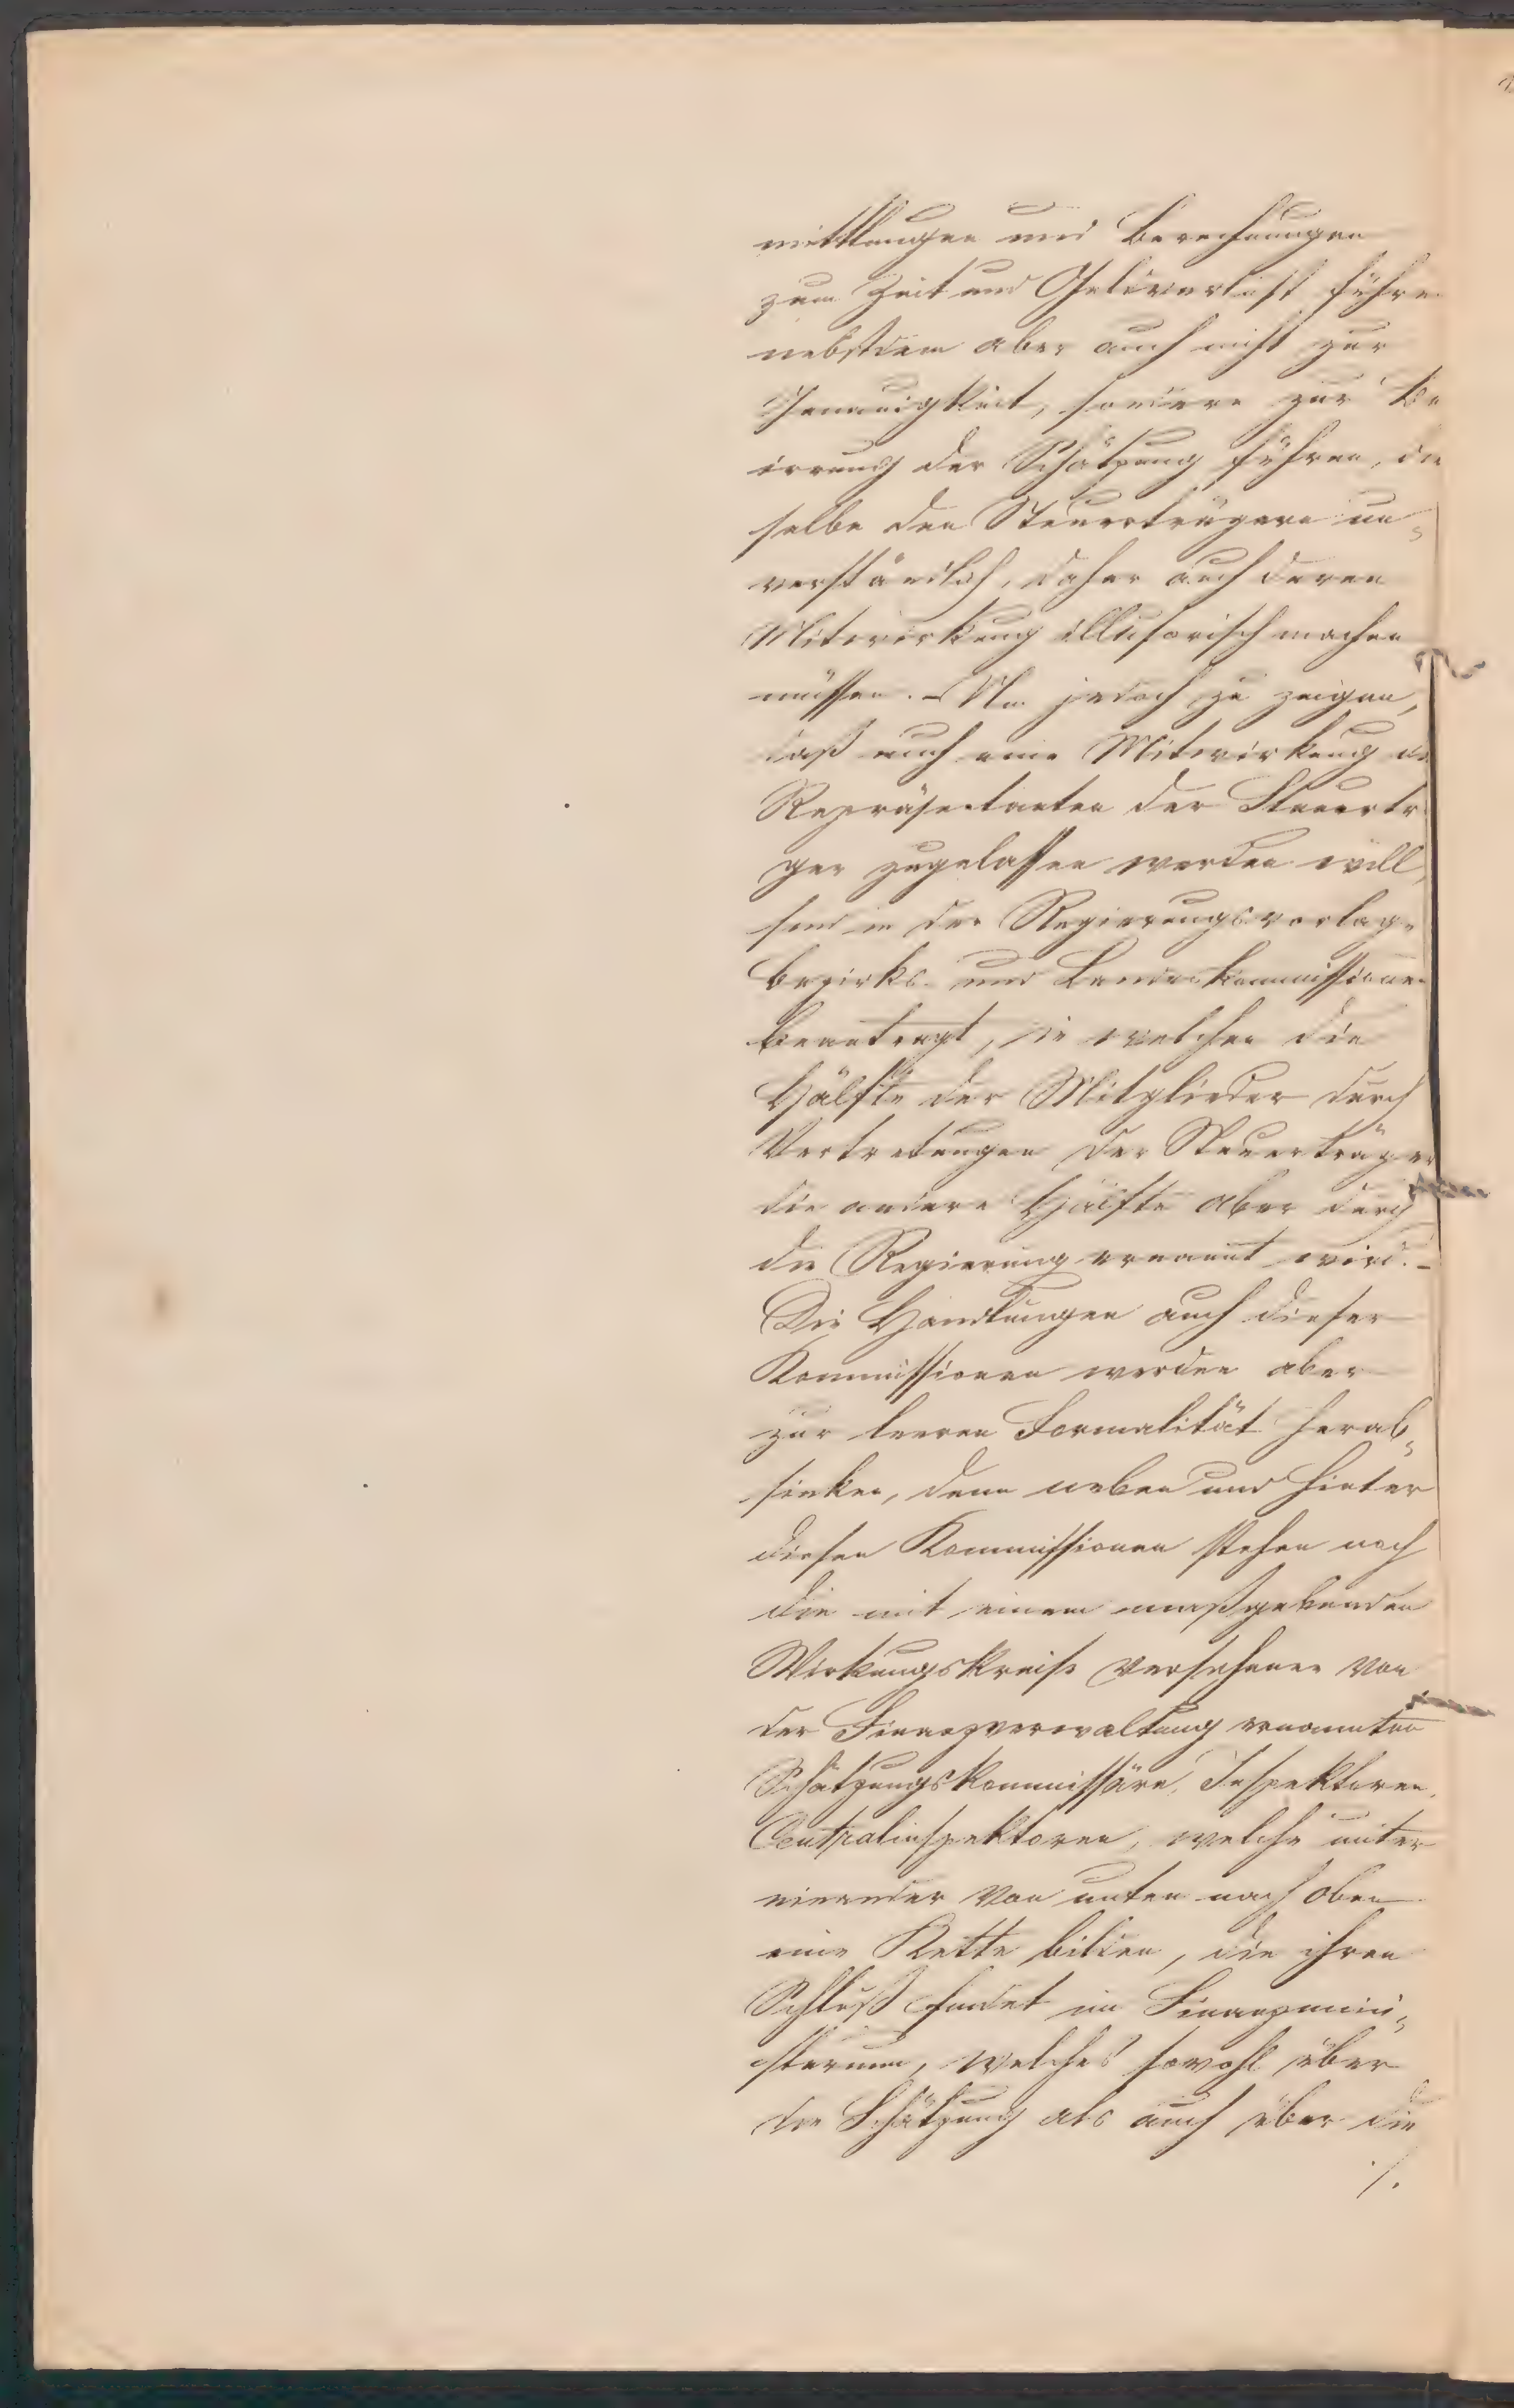 mittlungen und Berechnungen
zum Zeit und Geldverlust führe
nebstdem aber auch nicht zur
Genauigkeit, sondern zur Be
irrung der Schätzung führen, die
selbe den Steuerträgern un-
verständlich, daher auch deren
Mitwirkung illusorisch machen
müssen. – Um jedoch zu zeigen,
daß auch eine Mitwirkung de
Repräsentanten der Steuertr
ger zugelassen werden will,
sind in der Regierungsvorlage
Bezirks- und Landeskommissionen
beantragt, in welchen die
Hälfte der Mitglieder durch
Vertretungen der Steuerträger
die andere Hälfte aber durch
die Regierung ernannt wird. –
Die Handlungen auch dieser
Kommissionen werden aber
zur leeren Formalität herab-
sinken, denn neben und hinter
diesen Kommissionen stehen noch
die mit einem maßgebenden
Wirkungskreise versehenen von
der Finanzverwaltung ernannten
Schätzungskommissäre, Inspektoren,
Centralinspektoren, welche unter
einander von unten nach oben
eine Kette bilden, die ihren
Schluß findet im Finanzmini-
sterium, welches sowohl über
die Schätzung als auch über die
./.